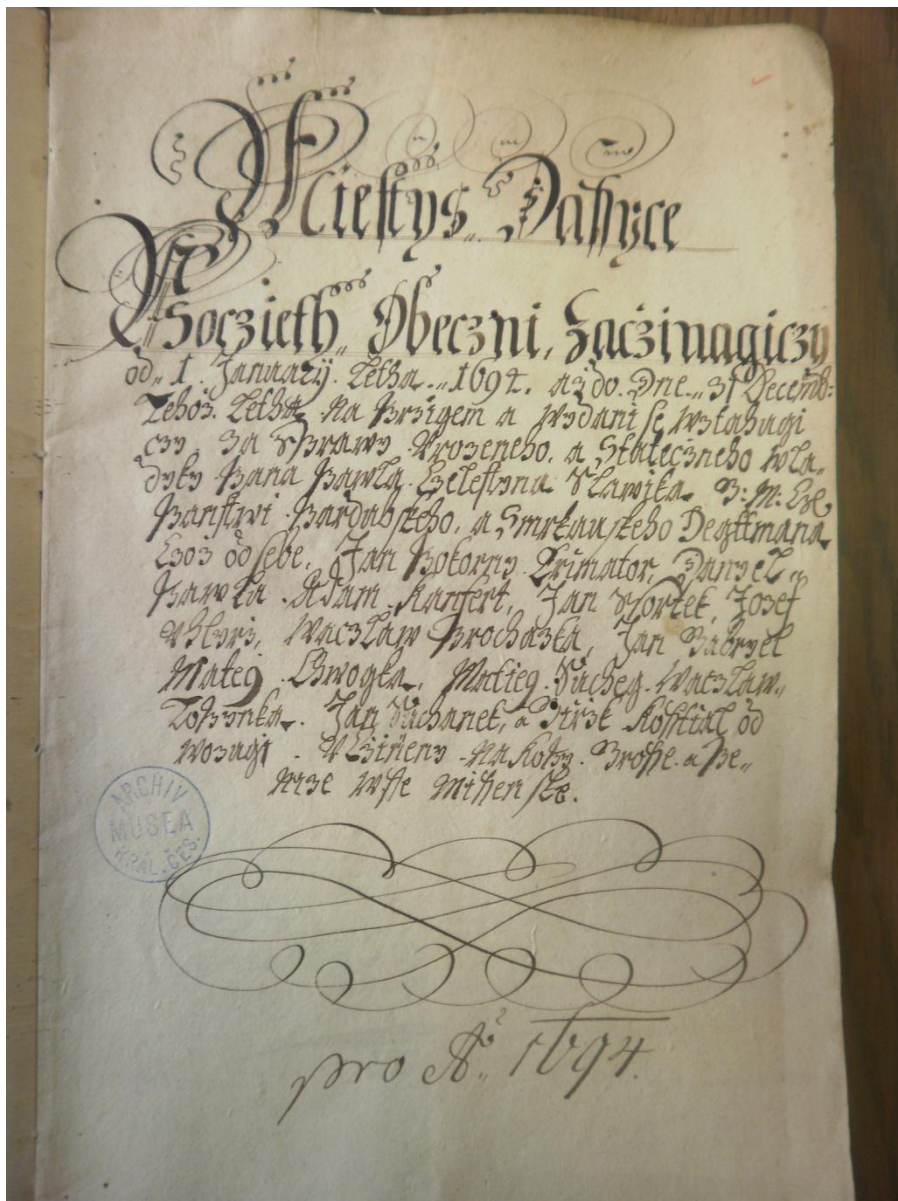 Miestys Dassycze
Poczieth Obeczni, Zacżinagiczy
od 1. January. Letha 1694. aż do Dne 31 Decemb:
Tehoż Letha, Na Przigem a wydani se wztahugi
czy, za Sprawy Urozeneho, a Stateczneho wla-
dyky Pana Pawla Celestyna Slawika
Panstwi Pardubskeho, a Smrkauskeho Hegttmana
od sebe, Jan Pokorny Primator, Danyel
Pawlka Adam Jan Josef
Waczlaw Prochazka, Jan Gabryel
Mateg Matieg Sucheg Waczlaw
Jan Suchanek, a Jirzik Kosstial od
wozugi Uczinieny Na Kopy Grosse a Pe-
nize wsse Missenske.
ARCHIV
MUSEA
KRÁL. ČES.
pro Aº 1694.